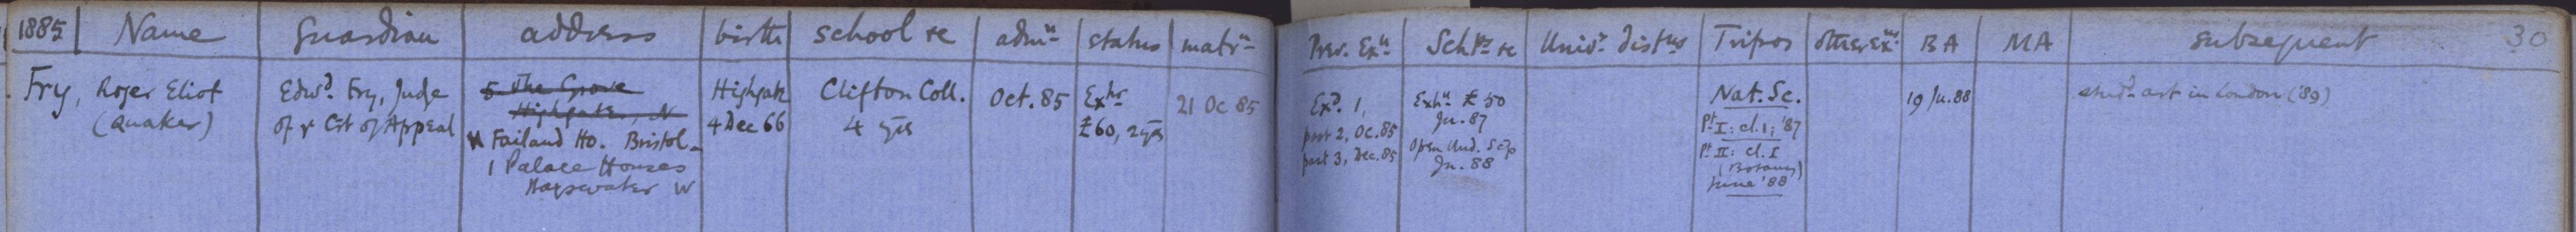 1885 Name Guardian address birth school &c admn status matrn Prev. Exn Schps &c Univy distns Tripos other Exns BA MA subsequent 30
Fry, Roger Eliot
(Quaker)
Edwd. Fry, Judge
of ye Crt of Appeal
5 The Grove
Highgate, N
Failand Ho. Bristol
1 Palace Houses
Bayswater W
Highgate
4 Dec 66
Clifton Coll.
4 yrs
Oct. 85
Exhr
£60, 2 yrs
21 Oc 85
Exd. 1,
part 2, Oc. 85
part 3, Dec. 85
Exhn £50
Ju. 87
Open Und. Scp
Ju. 88
Nat. Sc.
Pt I: cl. 1; '87
Pt II: cl. I
(Botany)
June '88
19 Ju. 88
studd art in London ('89)